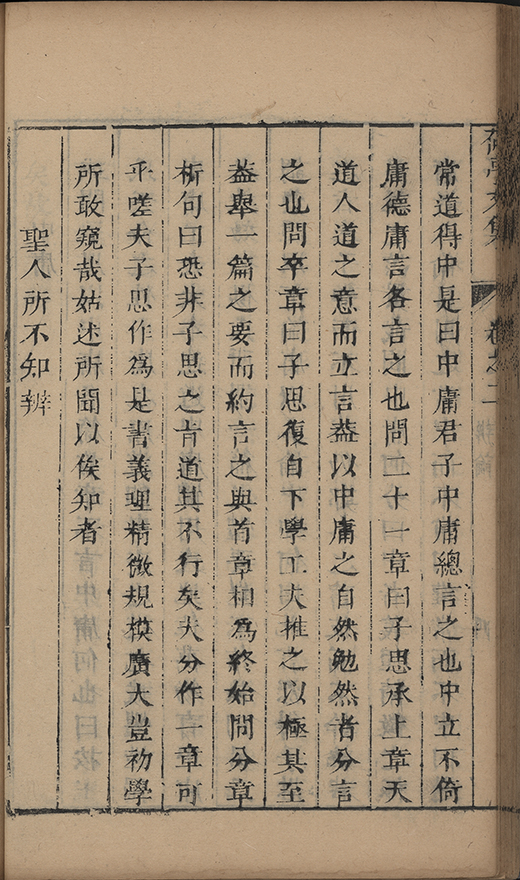 亭文集 卷之二
常道得中是曰中庸君子中庸總言之也中立不倚
庸德庸言各言之也問二十一章曰子思承上章天
道人道之意而立言葢以中庸之自然勉然者分言
之也問卒章曰子思復自下學工夫推之以極其至
葢舉一篇之要而約言之與首章相為終始問分章
析句曰恐非子思之旨道其不行矣夫分作一章可
乎嗟夫子思作爲是書義理精微規模廣大豈初學
所敢窺哉姑述所聞以俟知者
聖人所不知辨